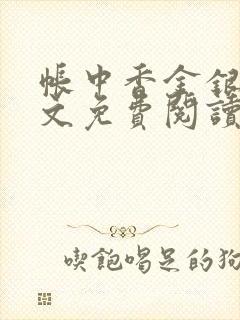 帳中香金銀
文免費閱讀
喫飽喝足的狗